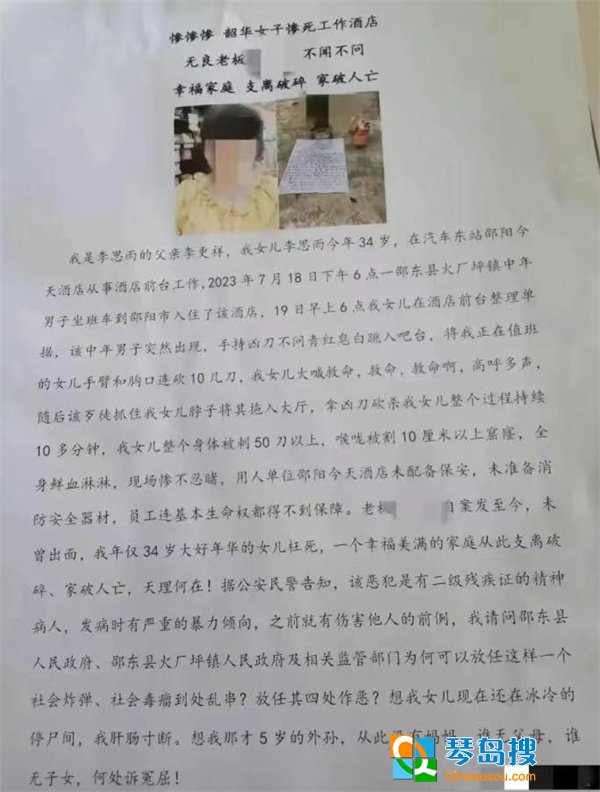 惨惨惨 韶华女子惨死工作酒店
无良老板 不闻不问
幸福家庭 支离破碎 家破人亡
我是李思雨的父亲李更祥，我女儿李思雨今年34岁，在汽车东站邵阳今
天酒店从事酒店前台工作,2023年7月18日下午6点一邵东县火厂坪镇中年
男子坐班车到邵阳市入住了该酒店，19日早上6点我女儿在酒店前台整理单
据，该中年男子突然出现，手持凶刀不问青红皂白跳入吧台，将我正在值班
的女儿手臂和胸口连砍10几刀，我女儿大喊救命，救命，救命啊，高呼多声，
随后该歹徒抓住我女儿脖子将其拖入大厅，拿凶刀砍杀我女儿整个过程持续
10多分钟，我女儿整个身体被刺50刀以上，喉咙被割10厘米以上窟窿，全
身鲜血淋淋，现场惨不忍睹，用人单位邵阳今天酒店未配备保安，未准备消
防安全器材，员工连基本生命权都得不到保障。老板 自案发至今，未
曾出面，我年仅34岁大好年华的女儿枉死，一个幸福美满的家庭从此支离破
碎、家破人亡，天理何在！据公安民警告知，该恶犯是有二级残疾证的精神
病人，发病时有严重的暴力倾向，之前就有伤害他人的前例，我请问邵东县
人民政府、邵东县火厂坪镇人民政府及相关监管部门为何可以放任这样一个
社会炸弹、社会毒瘤到处乱串？放任其四处作恶？想我女儿现在还在冰冷的
停尸间，我肝肠寸断。想我那才5岁的外孙，从此没有妈妈，谁无父母，谁
无子女，何处诉冤屈！
琴岛搜
Qindaosou.com